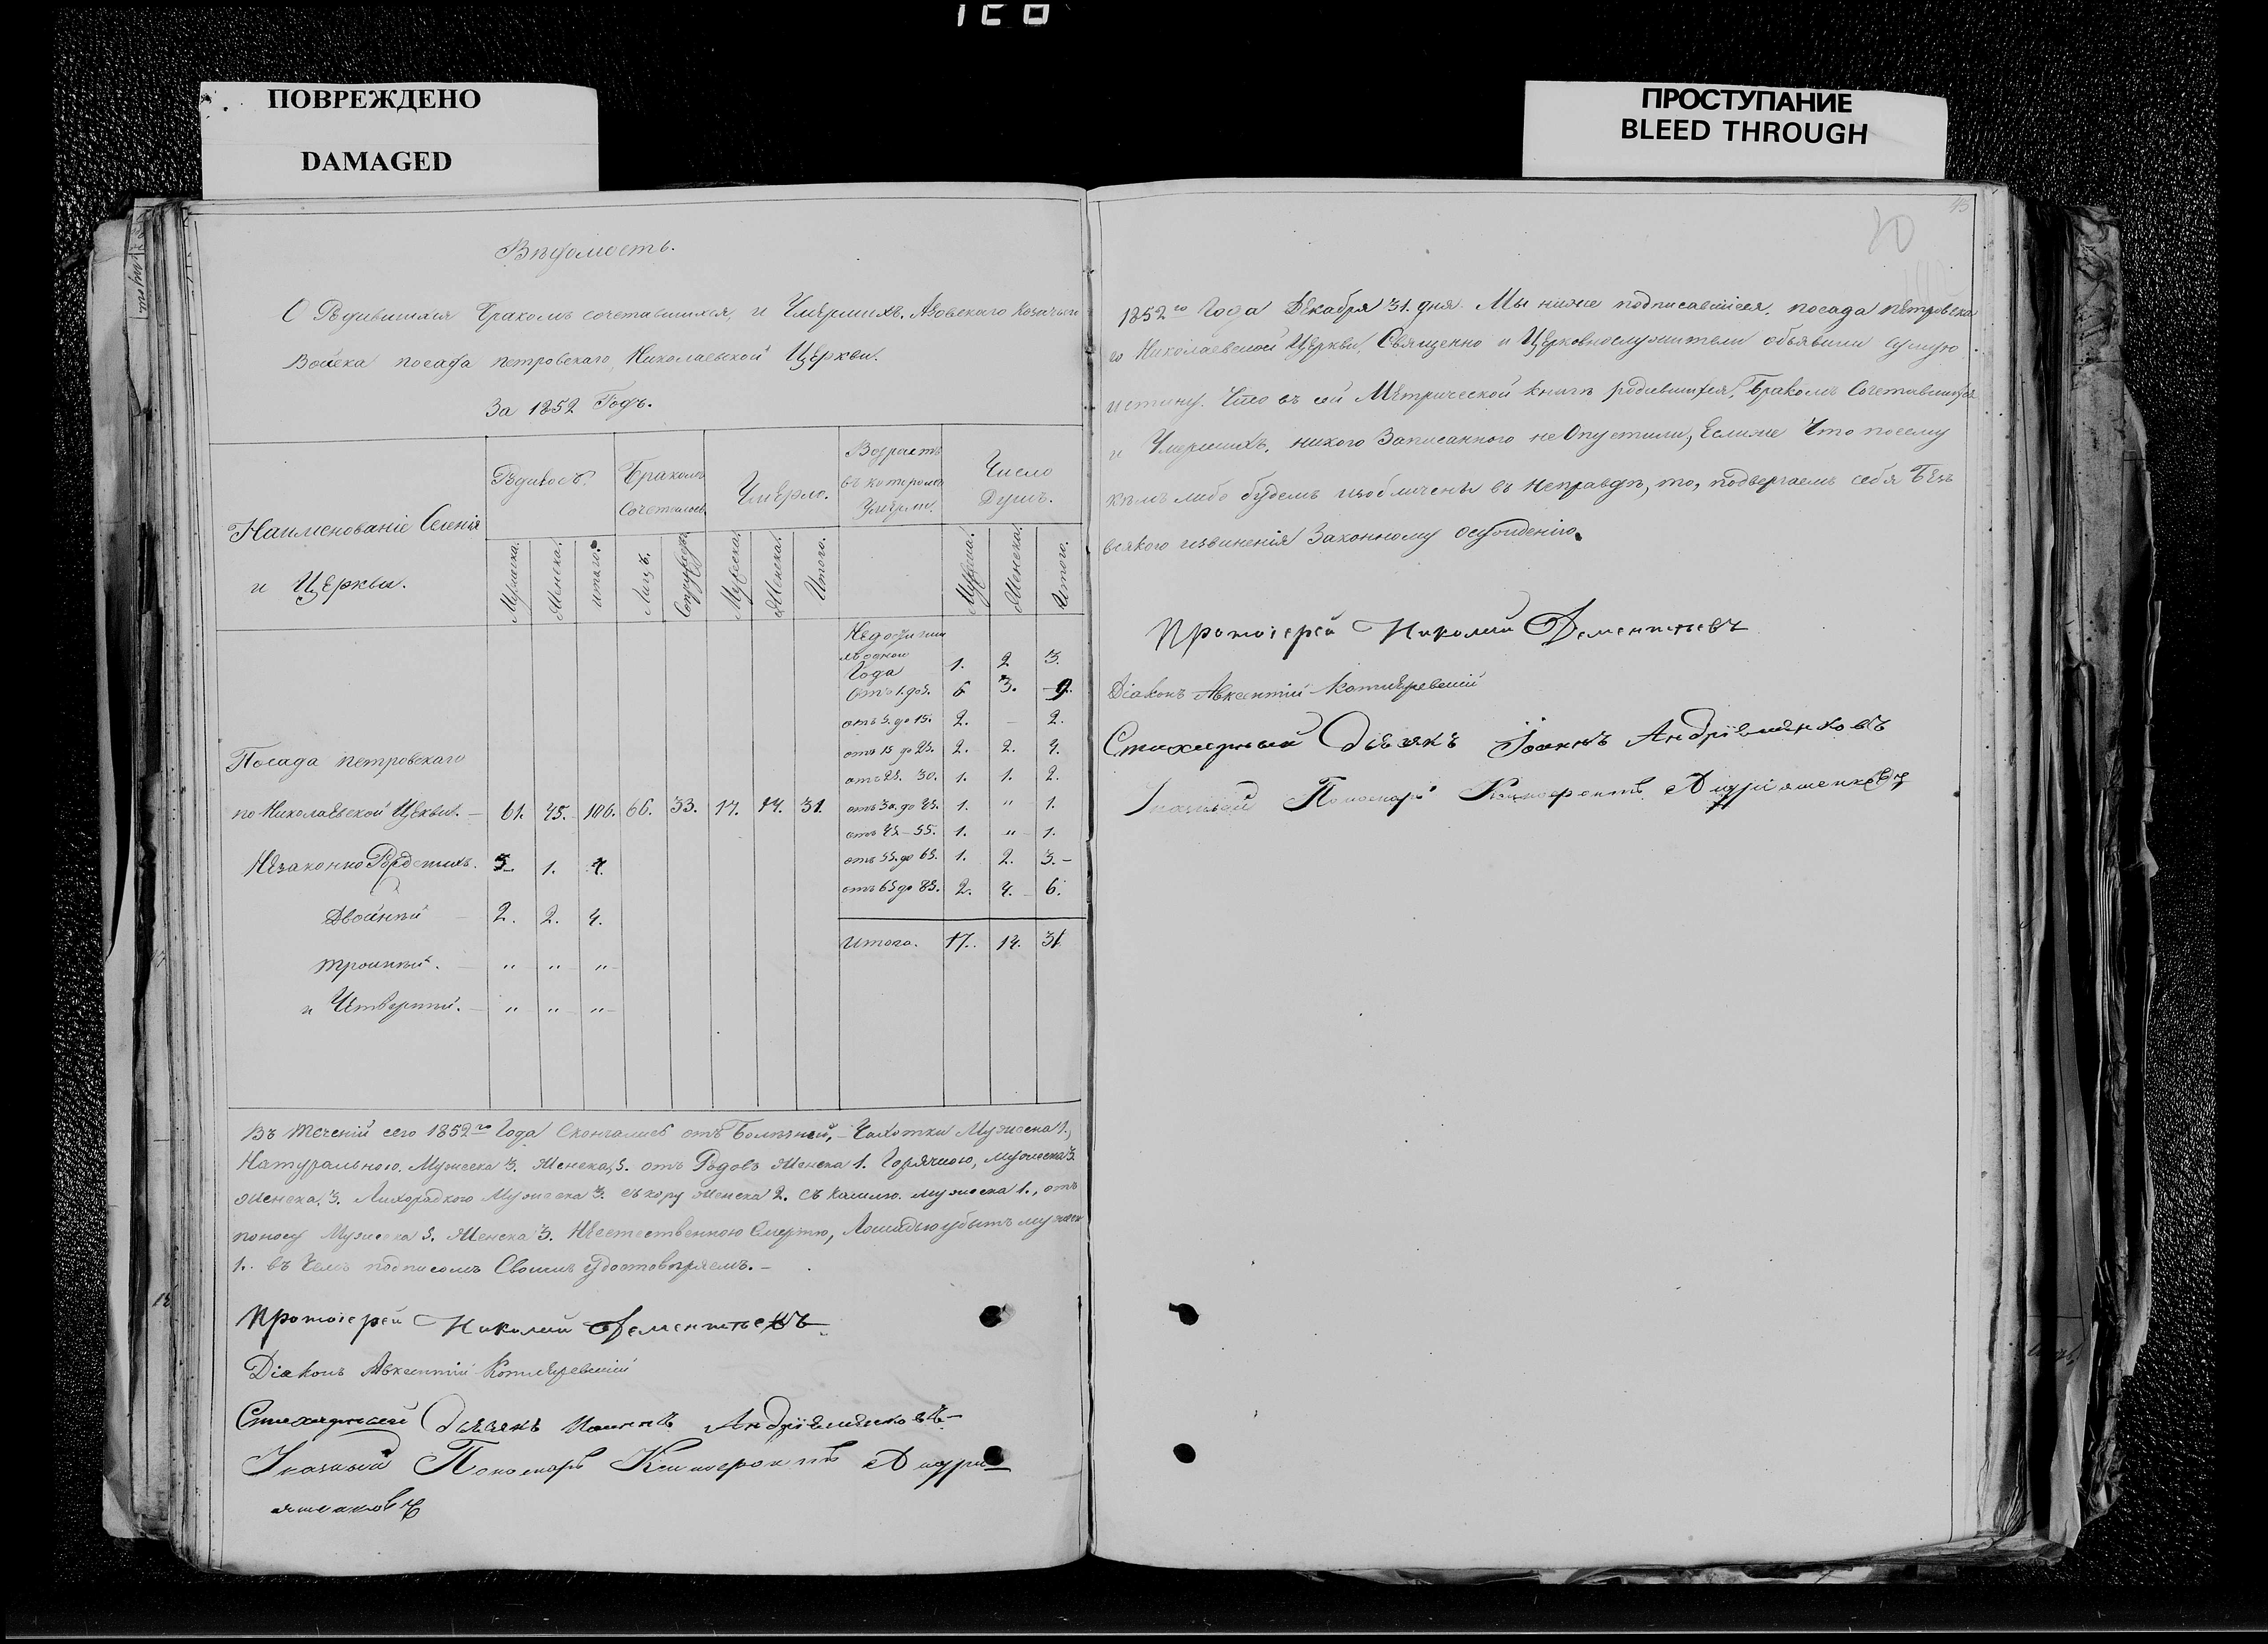 ПОВРЕЖДЕНО
DAMAGED
ПРОСТУПАНИЕ
BLEED THROUGH
Вѣдомость.
О Родившихся Бракомъ сочетавшихся, и Умершихъ. Азовскаго Козачьяго
Войска посада петровскаго, Николаевской Церкви.
За 1852 Годъ.
Наименованіе Селенія
и Церкви.
Родилось.
Бракомъ
Сочеталось
Умерло.
Возрастъ
въ которомъ
Умерли.
Число
Душъ.
Мужеска. Женска. итого. Лицъ. Супружест. Мужеска. Женска. Итого. Мужеска. Женска. Итого.
Недостигши
одного
Года 1. 2 3.
Отъ 1. до 5. 6 3. 9.
отъ 5. до 15. 2. – 2.
отъ 15 до 25. 2. 2. 4.
отъ 25. 30. 1. 1. 2.
отъ 30. до 45. 1. " 1.
отъ 45 – 55. 1. " 1.
отъ 55. до 65. 1. 2. 3. –
отъ 65 до 85. 2. 4. 6.
Итого. 17. 14. 31
Посада петровскаго
по Николаевской Церкви. – 61. 45. 106. 66. 33. 17. 14. 31.
Незаконно Рожденныхъ. 3 1. 4.
Двойней – 2. 2. 4.
тройней. – " " "
и Четверней. – " " "
Въ теченій сего 1852го Года Скончались отъ Болѣзней, – Чахотки Мужеска 1.,
Натуральною. Мужеска 3. Женска, 5. отъ Родовъ Женска 1. Горячкою, мужеска 3.
Женска. 3. Лихорадкою Мужеска 3. съ кору Женска 2. съ кашлю. мужеска 1., отъ
поносу Мужеска 5. Женска 3. Неестественною Смертію, Лошадью убитъ мужеска
1. въ чемъ подписомъ Своимъ удостовѣряемъ. –
Протоіерей Николай Дементьевъ
Діаконъ Авксентій Котляревскій
Стихарный Дьячекъ Иоаннъ Андріяшенковъ
Указный Пономарь Ксенофонтъ Андрі
яшенковъ
1852го Года Декабря 31. дня. Мы ниже подписавшіеся, посада петровска
го Николаевской Церкви, Священно и Церковнослужители объявили сущую
истину. Что въ сей Метрической книгѣ родившихся, Бракомъ Сочетавшихся
и Умершихъ, никого Записанного не Опустили, Еслиже Что посему
кѣмъ либо будемъ изобличены въ неправдѣ, то, подвергаемъ себя Безъ
всякого извиненія Законному Осужденію.
Протоіерей Николай Дементьевъ
Діаконъ Авксентій Котляревскій
Стихарный Дьячекъ Іоаннъ Андріяшенковъ
Указный Пономарь Ксенофонтъ Андріяшенковъ